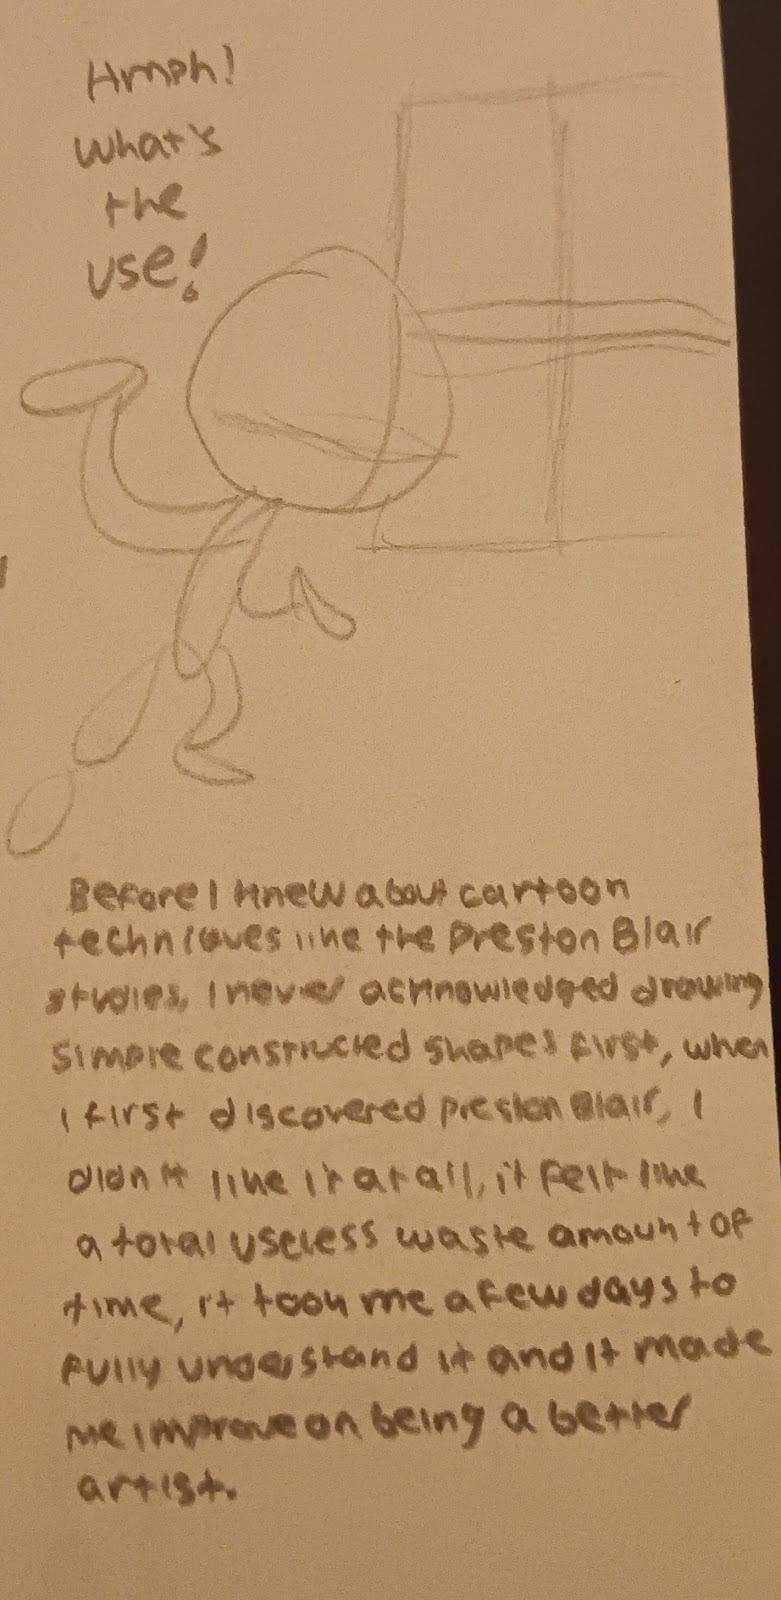 Hmph!
What's
the
use!
Before I knew about cartoon
techniques like the Preston Blair
studies, I never acknowledged drawing
simple constructed shapes first, when
I first discovered Preston Blair, I
didn't like it at all, it felt like
a total useless waste amount of
time, it took me a few days to
fully understand it and it made
me improve on being a better
artist.